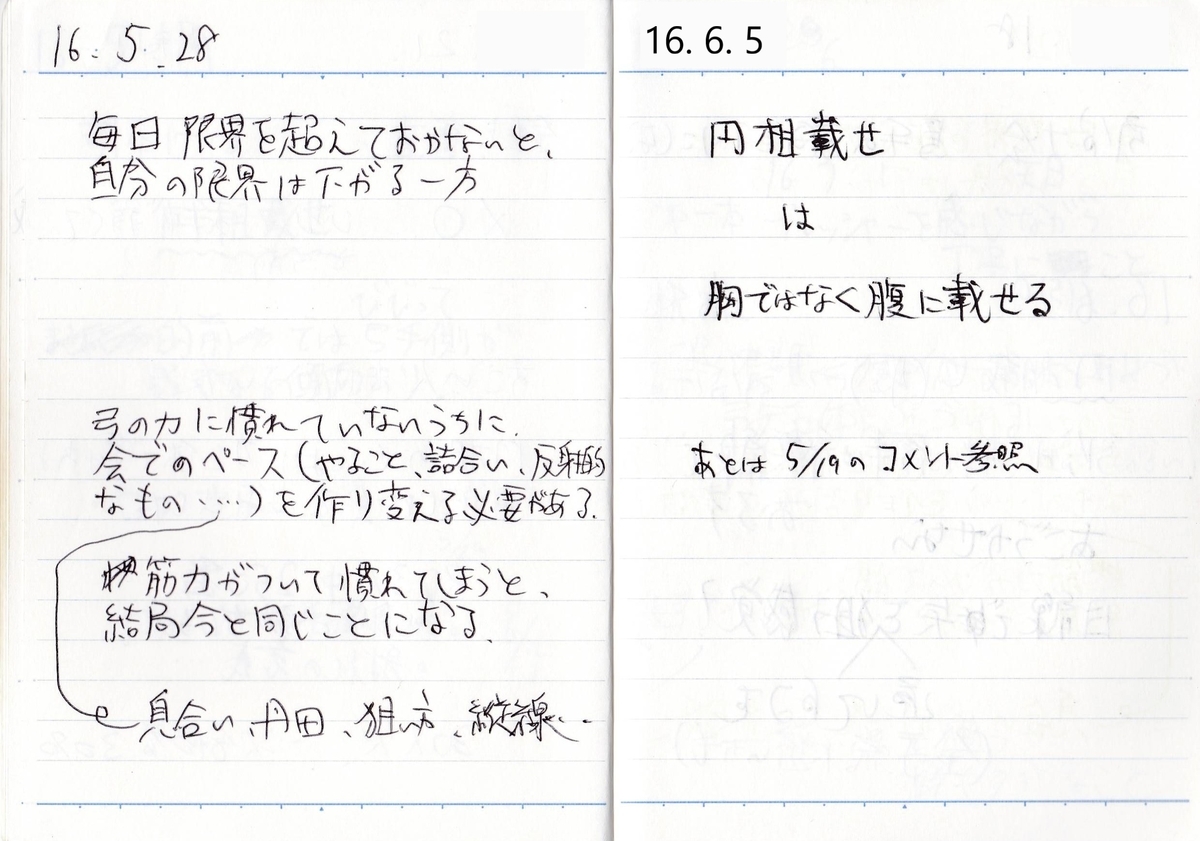 16. 5. 28
毎日 限界を超えておかないと、
自分の限界は下がる一方
弓の力に慣れていないうちに、
会でのペース(やること、詰合い、反射的
なもの……)を作り変える必要がある。
筋力がついて慣れてしまうと、
結局今と同じことになる。
息合い、丹田、狙い方、縦線…
16. 6. 5
円相載せ
は
胸ではなく腹に載せる
あとは 5/19のコメント参照